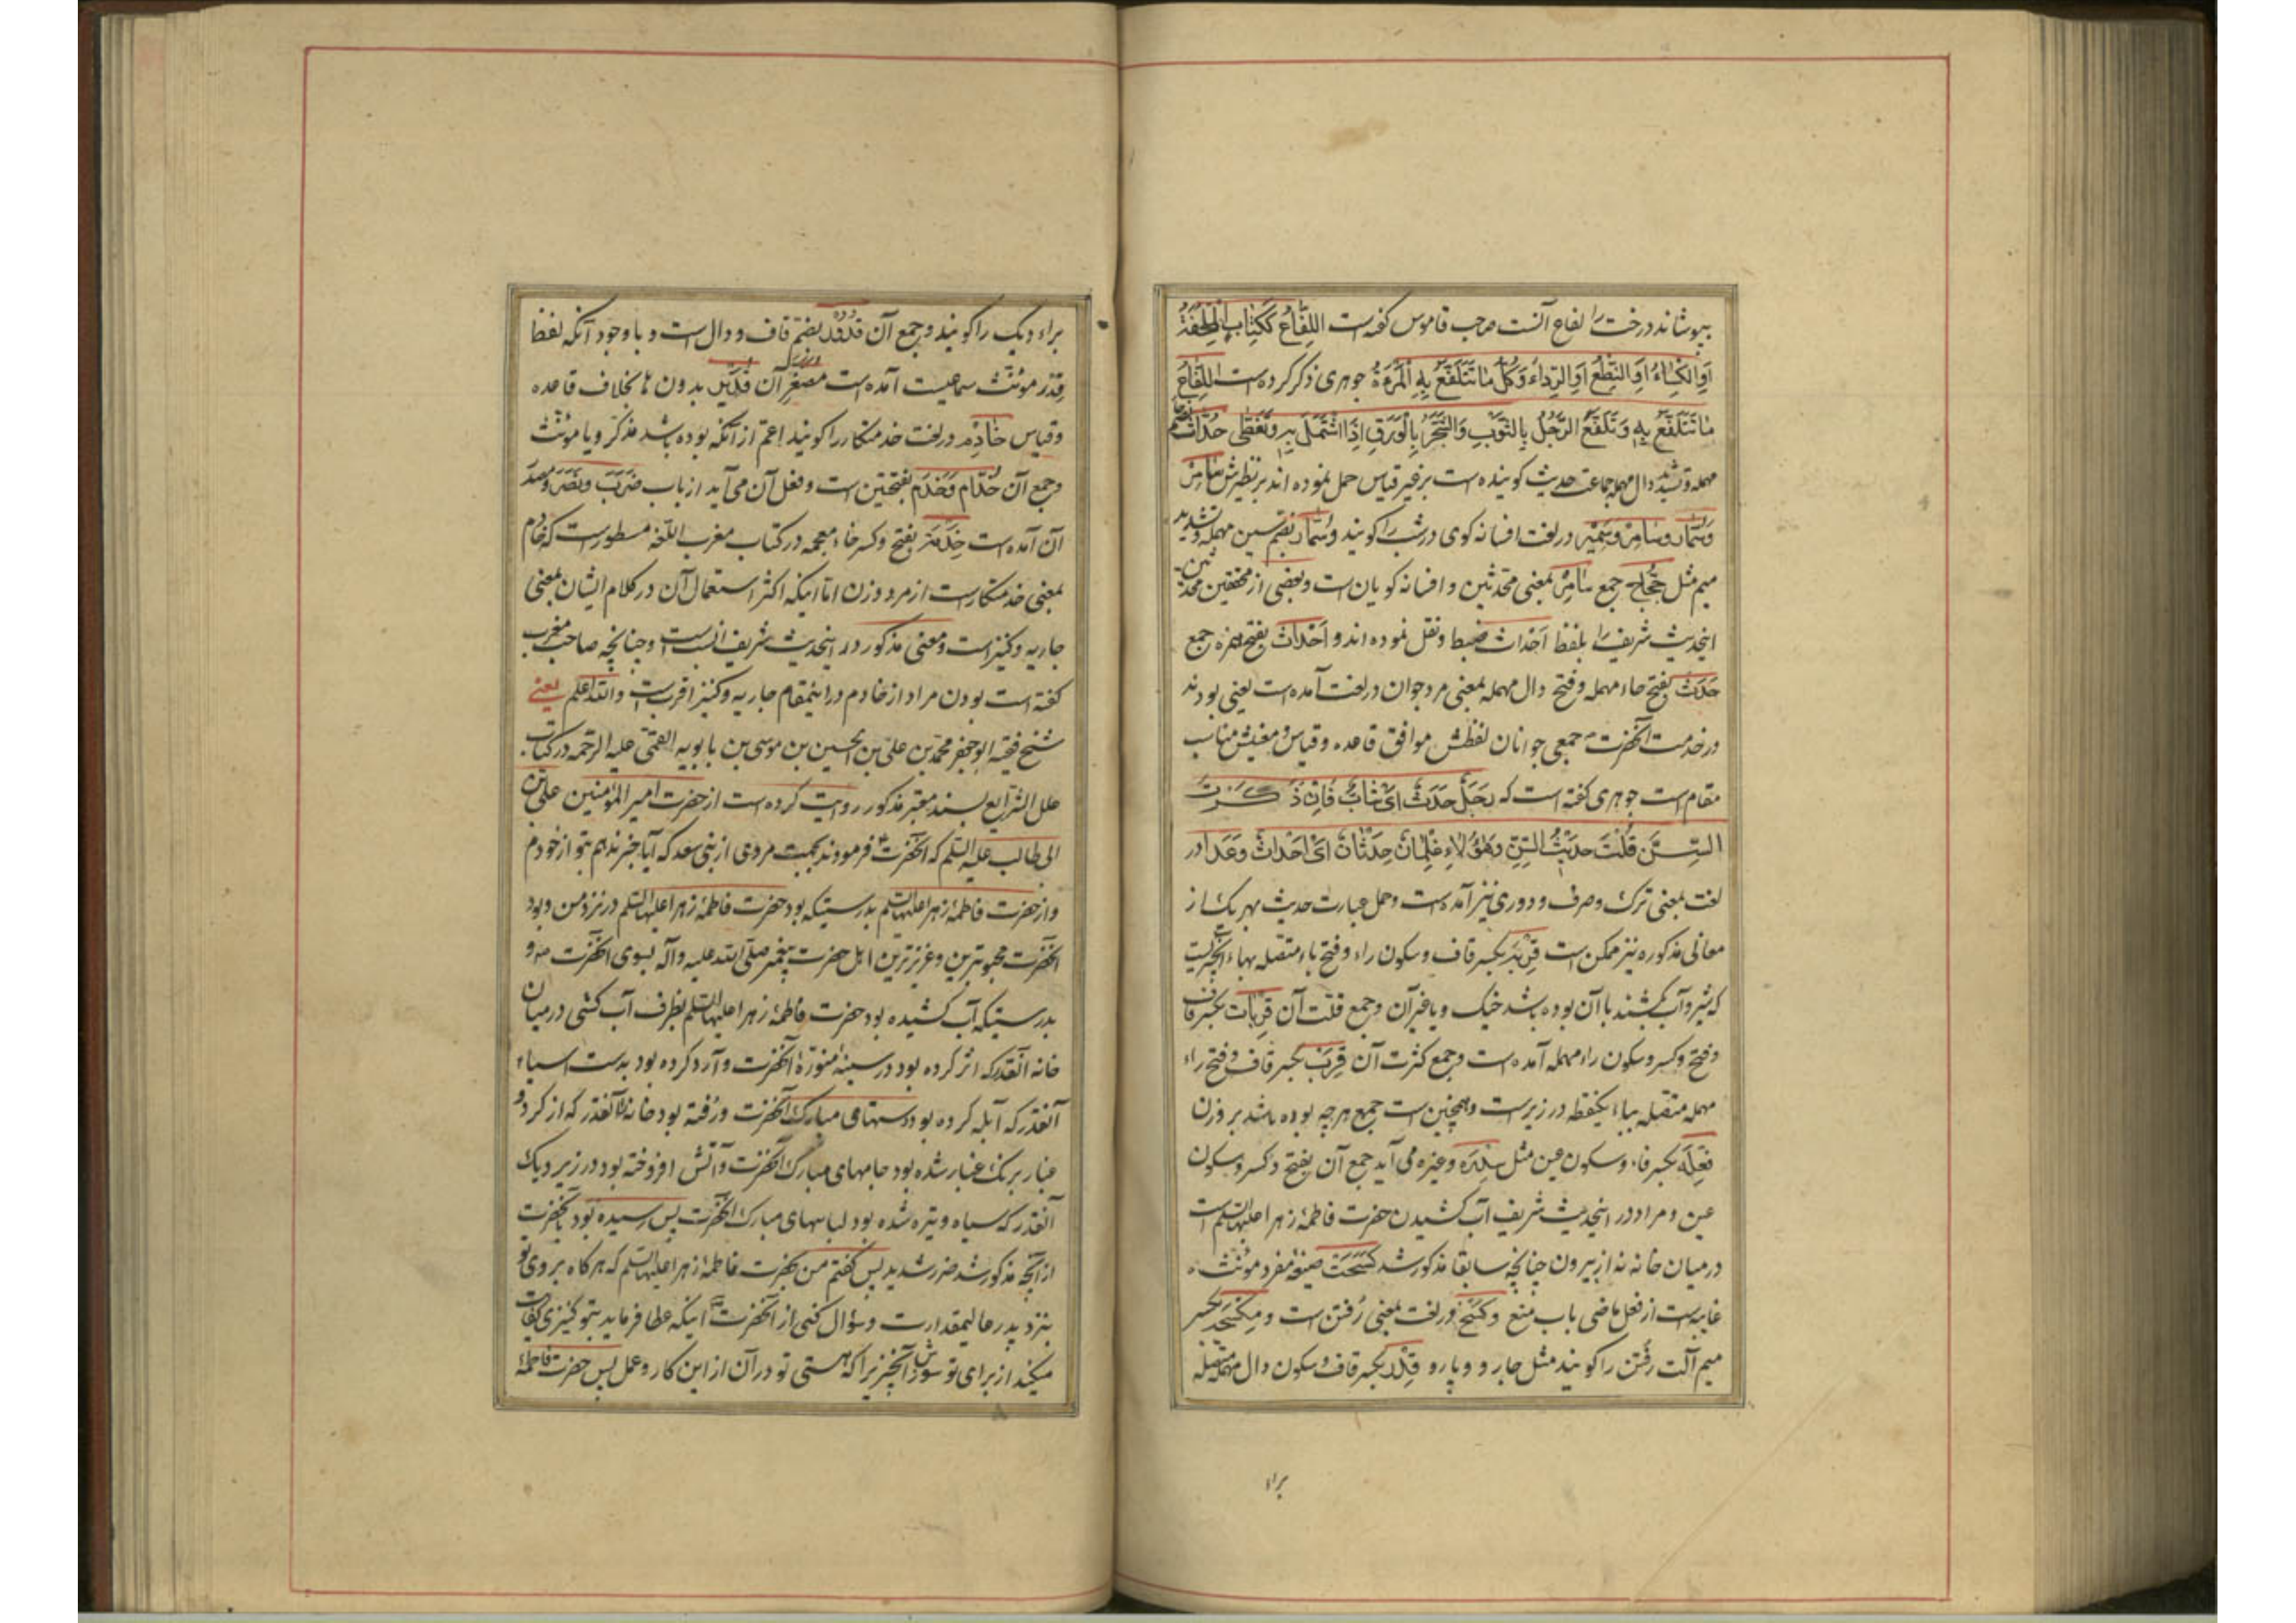 بپوشاند درخت را لفاع آنست صاحب قاموس گفته است اللِّفَاعُ كَكِتَابٍ المِلْحَفَةُ
اَوِ الكِسَاءُ اَوِ النِّطَعُ اَوِ الرِّدَاءُ وَكُلُّ مَا تَتَلَفَّعُ بِهِ المَرْءَةُ جوهری ذکر کرده است اللِّفَاعُ
مَا تَتَلَفَّعُ بِهِ وَتَلَفَّعَ الرَّجُلُ بِالثَّوْبِ وَالشَّجَرُ بِالْوَرَقِ اِذَا اشْتَمَلَ بِهِ وَتَغَطَّى حُدّاث بضم حاء
مهمله و تشدید دال مهمله جماعت حدیث گوینده است بر غیر قیاس حمل نموده اند بر نظیرش سَامِرْ
وَسُمَّار و سَامِرْ وَسَمِیْر در لغت افسانه گوی در شب را گویند و سُمَّار بضم سین مهمله و تشدید
میم مثل حُجَّاج جمع سَامِرْ بمعنی محدّثین و افسانه گویان است و بعضی از محققین محدثین
اینحدیث شریف را بلفظ اَحْدَاث ضبط و نقل نموده اند و اَحْدَاث بفتح همزه جمع
حَدَث بفتح حاء مهمله و فتح دال مهمله بمعنی مرد جوان در لغت آمده است یعنی بودند
در خدمت آنحضرت جمعی جوانان لفظش موافق قاعده و قیاس و معنیش مناسب
مقام است جوهری گفته است که رَجُلٌ حَدَثٌ اَیْ شَابٌّ فَاِنْ ذَكَرْتَ
السِّنَّ قُلْتَ حَدِیْثُ السِّنِّ وَهٰؤُلَاءِ غِلْمَانٌ حِدْثَانٌ اَیْ اَحْدَاثٌ وعَدَا در
لغت بمعنی ترک و صرف و دوری نیز آمده است و حمل عبارت حدیث بهر یک از
معانی مذکوره نیز ممکن است قِرْبَة بکسر قاف و سکون راء و فتح باء متصله بهاء آنچیزیست
که شیر و آب بکشند با آن بوده باشد خیک و یا غیر آن و جمع قلت آن قِرْبَات بکسر قاف
و فتح و کسر و سکون راء مهمله آمده است و جمع کثرت آن قِرَب بکسر قاف و فتح راء
مهمله متصله بباء یکنقطه در زیر است و همچنین است جمع هر چه بوده باشد بر وزن
فِعْلَه بکسر فاء و سکون عین مثل سِدْرَه و غیره می آید جمع آن بفتح و کسر و سکون
عین و مراد در اینحدیث شریف آب کشیدن حضرت فاطمهٔ زهرا علیها السلم است
در میان خانه نه از بیرون چنانچه سابقا مذکور شد کَسَحَت صیغهٔ مفرد مؤنث
غایبه است از فعل ماضی باب منع و کَسْح در لغت بمعنی رُفتن است و مِکْسَحَه بکسر
میم آلت رُفتن را گویند مثل جارو و پارو قِدْر بکسر قاف و سکون دال مهمله متصله
براء
براء دیک را گویند و جمع آن قُدُوْر بضم قاف و دال است و با وجود آنکه لفظ
قِدْر مؤنث سماعیست آمده است مصغر آن قُدَیْر بدون ها بخلاف قاعده
و قیاس خَادِم در لغت خدمتکار را گویند اعم از آنکه بوده باشد مذکر و یا مونث
و جمع آن خُدَّام وَخَدَم بفتحتین است و فعل آن می آید از باب ضَرَبَ ونَصَرَ و مصدر
آن آمده است خِدْمَة بفتح و کسر خاء معجمه در کتاب مغرب اللغه مسطور است که خادم
بمعنی خدمتکار است از مرد و زن اما اینکه اکثر استعمال آن در کلام ایشان بمعنی
جاریه و کنیز است و معنی مذکور در اینحدیث شریف انسب است و چنانچه صاحب مغرب
گفته است بودن مراد از خادم در اینمقام جاریه و کنیز اقرب است والله اعلم یعنی
شیخ فقیه ابو جعفر محمد بن علی بن الحسین بن موسی بن بابویه القمی علیه الرحمه در کتاب
علل الشرایع بسند معتبر مذکور روایت کرده است از حضرت امیر المؤمنین علی بن
ابی طالب علیه السلم که آنحضرت فرمودند بجهت مردی از بنی سعد که آیا خبر ندهم بتو از خودم
و از حضرت فاطمهٔ زهرا علیها السلم بدرستیکه بود حضرت فاطمهٔ زهرا علیها السلم در نزد من و بود
آنحضرت محبوبترین و عزیزترین اهل حضرت پیغمبر صلی الله علیه وآله بسوی آنحضرت ص و
بدرستیکه آب کشیده بود حضرت فاطمهٔ زهرا علیها السلم بظرف آب کشی در میان
خانه آنقدر که اثر کرده بود در سینهٔ منوّرهٔ آنحضرت و آرد کرده بود بدست آسیاء
آنقدر که آبله کرده بود دستهای مبارک آنحضرت و رُفته بود خانه را آنقدر که از گرد و
غبار برنک غبار شده بود جامهای مبارک آنحضرت و آتش افروخته بود در زیر دیک
آنقدر که سیاه و تیره شده بود لباسهای مبارک آنحضرت پس رسیده بود بآنحضرت
از آنچه مذکور شد ضرر شدید پس گفتم من بحضرت فاطمهٔ زهرا علیها السلم که هرگاه بروی تو
بنزد پدر عالیمقدارت و سؤال کنی از آنحضرت اینکه عطا فرماید بتو کنیزی کفایت
میکند از برای تو سوزش آنچیزیرا که هستی تو در آن از این کار و عمل پس حضرت فاطمهٔ